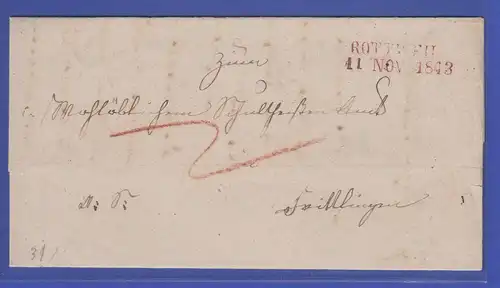 ROTTWEIL
11 NOV 1843
Zum
Wohllöblichen Schultheißen Amt
in
Frittlingen
31